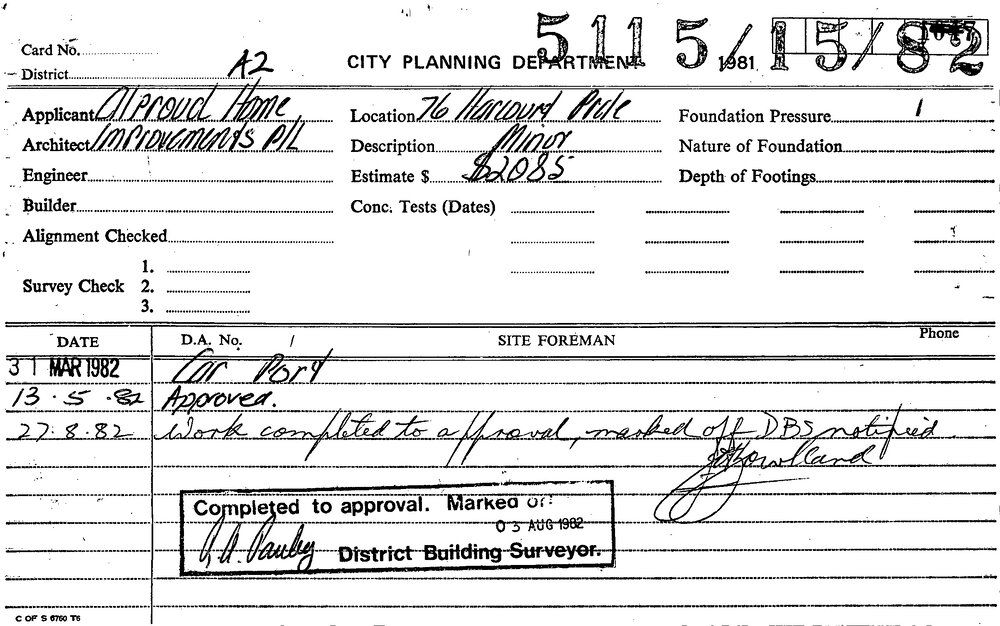 511 5/15/82
Card No.
District A2
CITY PLANNING DEPARTMENT 1981
Applicant Alproud Home Location 76 Harcourt Prde Foundation Pressure
Architect Improvements P/L Description Minor Nature of Foundation
Engineer Estimate $ $2085 Depth of Footings
Builder Conc. Tests (Dates)
Alignment Checked
1.
Survey Check 2.
3.
DATE D.A. No. / SITE FOREMAN Phone
31 MAR 1982 Car Port
13.5.82 Approved.
27.8.82 Work completed to approval, marked off DBS notified.
Completed to approval. Marked
03 AUG 1982
District Building Surveyor.
C OF S 6760 T6